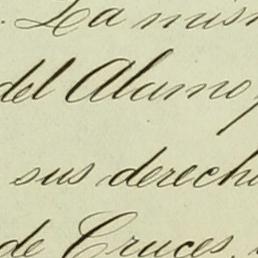 . La mism
del Alamo,
sus derecho
de Cruces,